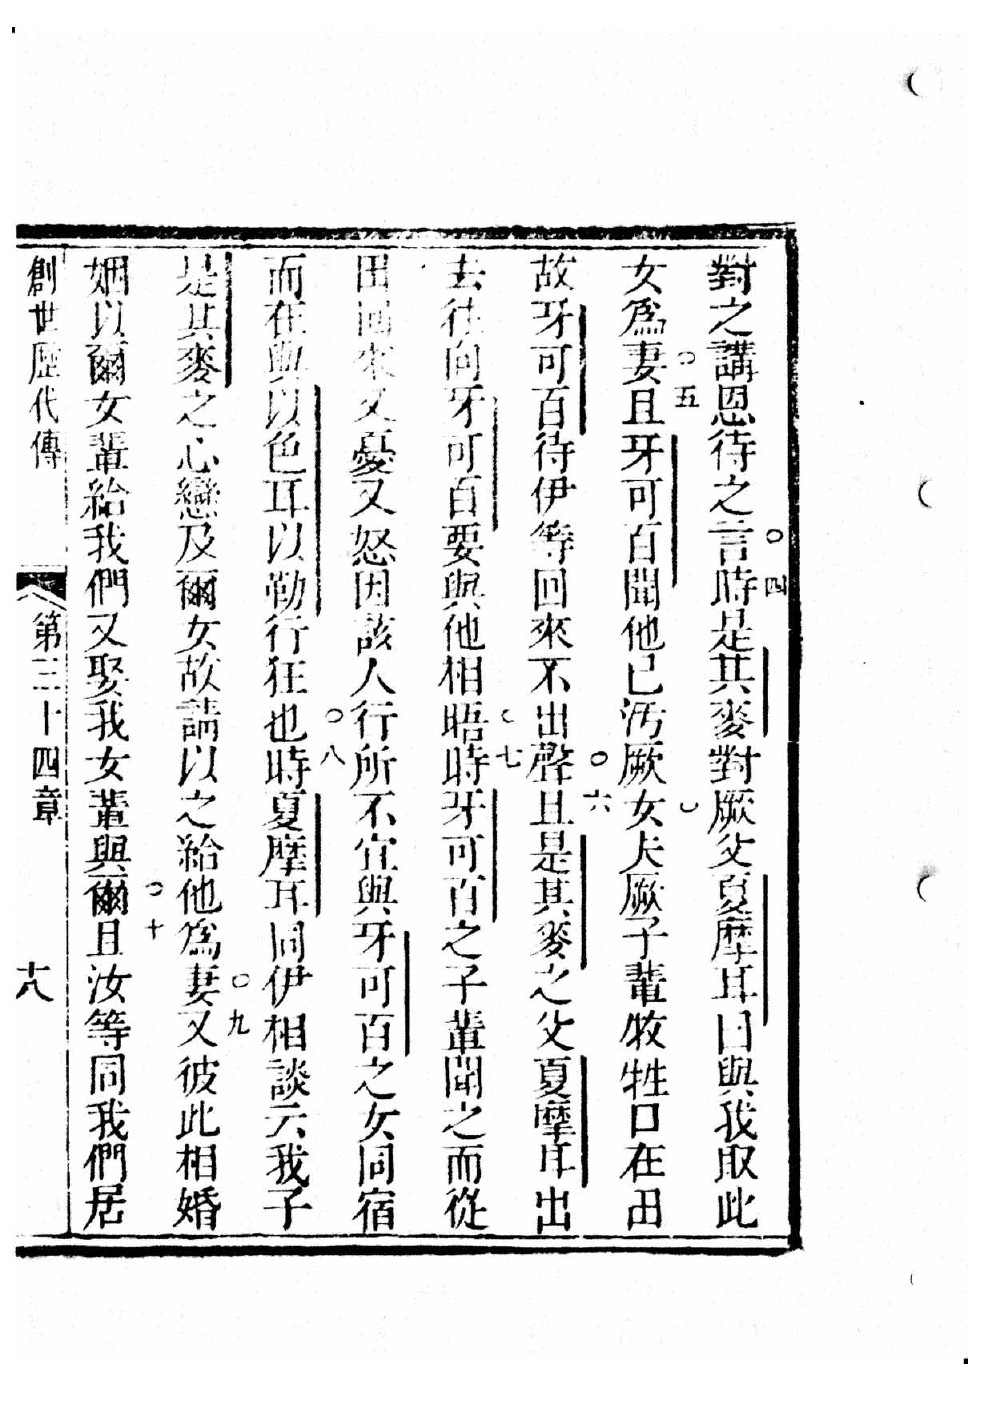 對之講恩待之言○四時是其麥對厥父夏摩耳曰與我取此
女為妻○五且牙可百聞他已污厥女夫厥子輩牧牲口在田
故牙可百待伊等回來不出聲○六且是其麥之父夏摩耳出
去往向牙可百要與他相晤○七時牙可百之子輩聞之而從
田回來又憂又怒因該人行所不宜與牙可百之女同宿
而在與以色耳以勒行狂也○八時夏摩耳同伊相談云我子
是其麥之心戀及爾女故請以之給他為妻○九又彼此相婚
姻以爾女輩給我們又娶我女輩與爾○十且汝等同我們居
創世歷代傳 第三十四章 十八